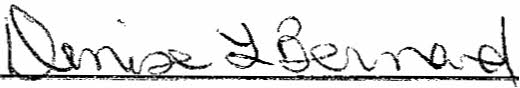 Denise L Bernard